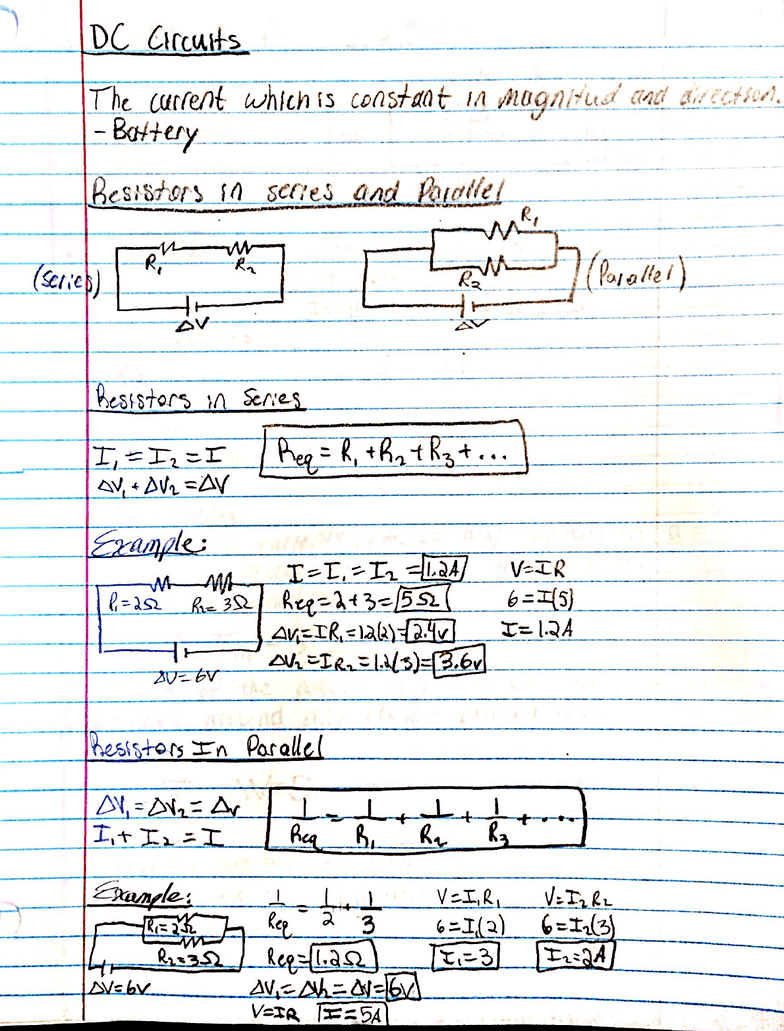 DC Circuits
The current which is constant in magnitud and direction.
- Battery
Resistors in series and Parallel
(Series)
R₁ R₂
ΔV
R₁
R₂
ΔV
(Parallel)
Resistors in Series
I₁ = I₂ = I
ΔV₁ + ΔV₂ = ΔV
Req = R₁ + R₂ + R₃ + ...
Example:
R₁=2Ω R₂=3Ω
ΔV=6V
I = I₁ = I₂ = 1.2A
Req = 2+3 = 5Ω
ΔV₁=IR₁=1.2(2)=2.4v
ΔV₂=IR₂=1.2(3)=3.6v
V=IR
6=I(5)
I=1.2A
Resistors In Parallel
ΔV₁=ΔV₂=Δv
I₁+I₂=I
1/Req = 1/R₁ + 1/R₂ + 1/R₃ + ...
Example:
R₁=2Ω
R₂=3Ω
ΔV=6V
1/Req = 1/2 + 1/3
Req=1.2Ω
ΔV₁=ΔV₂=ΔV=6V
V=IR I=5A
V=I₁R₁
6=I₁(2)
I₁=3
V=I₂R₂
6=I₂(3)
I₂=2A